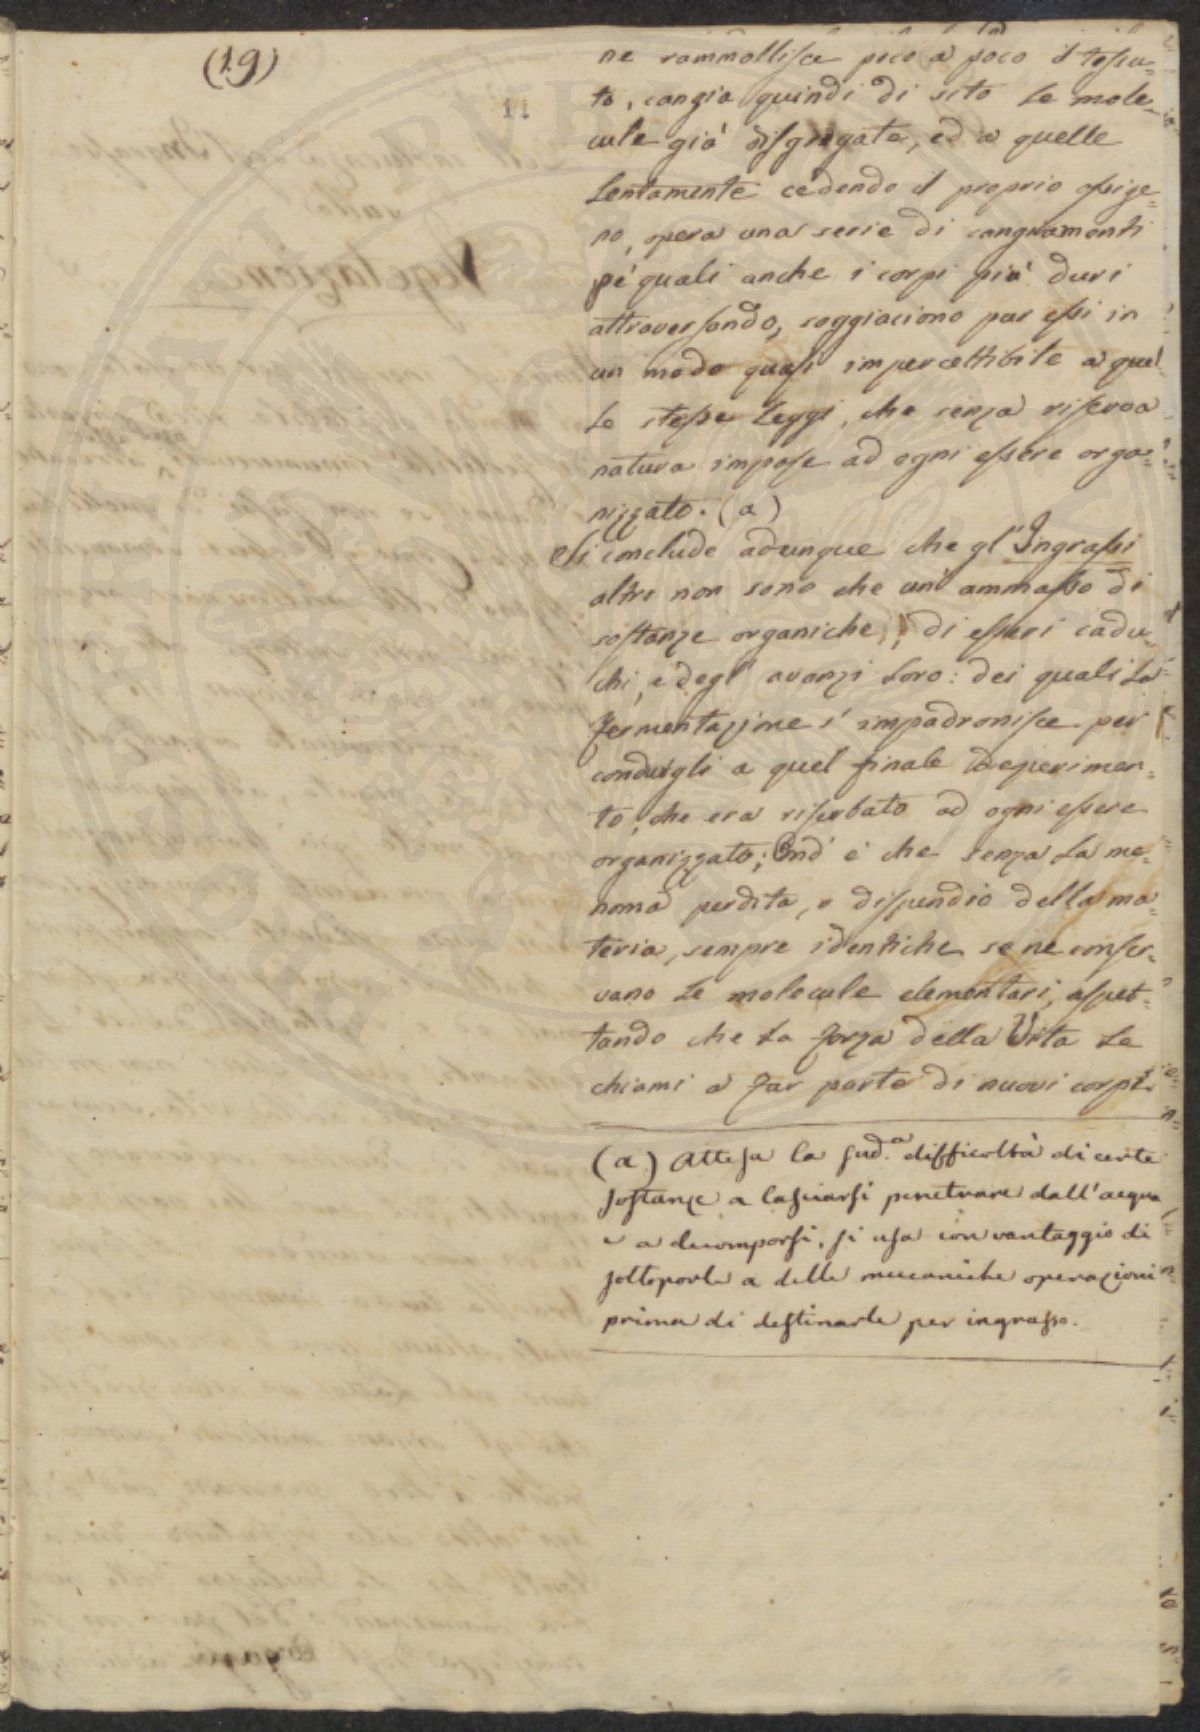 (19)
11
ne rammollisce poco a poco il tessu=
to, cangia quindi di sito le mole=
cule già disgregate, ed a quelle
lentamente cedendo il proprio ossige=
no, opera una serie di cangiamenti
pe' quali anche i corpi più duri
attraversando, soggiaciono pur essi in
un modo quasi impercettibile a quel
le stesse leggi, che senza riserva
natura impose ad ogni essere orga=
nizzato. (a)
Si conclude adunque che gl'Ingrassi
altro non sono che un'ammasso di
sostanze organiche, di esseri cadu=
chi, e degl'avanzi loro: dei quali la
fermentazione s'impadronisce per
condurgli a quel finale deperimen=
to, che era riserbato ad ogni essere
organizzato; Ond'è che senza la me=
noma perdita, o dispendio della ma=
teria, sempre identiche se ne conser=
vano le molecule elementari, aspet=
tando che la forza della Vita le
chiami a far parte di nuovi corpi.
(a) Attesa la sud.a difficoltà di certe
sostanze a lasciarsi penetrare dall'acqua
e a decomporsi, si usa con vantaggio di
sottoporle a delle meccaniche operazioni
prima di destinarle per ingrasso.